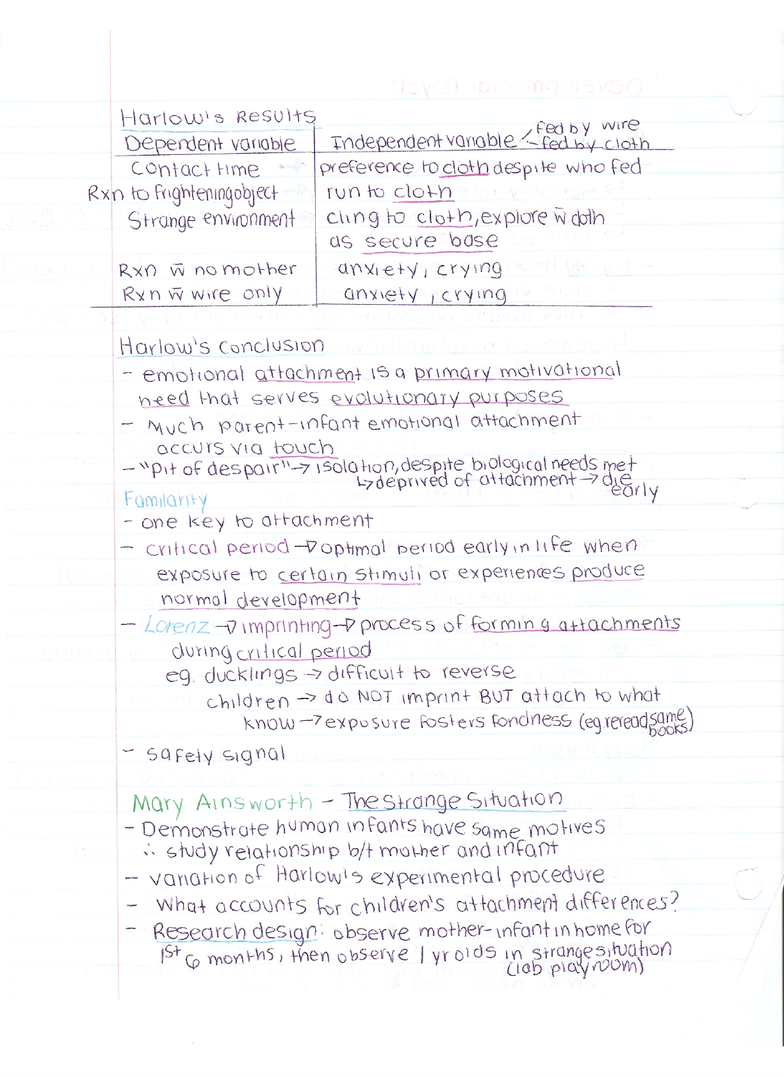 Harlow's Results
Dependent variable | Independent variable fed by wire
fed by cloth
Contact time | preference to cloth despite who fed
Rxn to frightening object | run to cloth
Strange environment | cling to cloth, explore w̄ cloth
as secure base
Rxn w̄ no mother | anxiety, crying
Rxn w̄ wire only | anxiety, crying
Harlow's Conclusion
- emotional attachment is a primary motivational
need that serves evolutionary purposes
- Much parent-infant emotional attachment
occurs via touch
- "Pit of despair" → isolation, despite biological needs met
↳ deprived of attachment → die
early
Familarity
- one key to attachment
- critical period → optimal period early in life when
exposure to certain stimuli or experiences produce
normal development
- Lorenz → imprinting → process of forming attachments
during critical period
eg. ducklings → difficult to reverse
children → do NOT imprint BUT attach to what
know → exposure fosters fondness (eg reread same
books)
- safely signal
Mary Ainsworth - The Strange Situation
- Demonstrate human infants have same motives
∴ study relationship b/t mother and infant
- variation of Harlow's experimental procedure
- What accounts for children's attachment differences?
- Research design: observe mother-infant in home for
1st 6 months, then observe 1 yr olds in strange situation
(lab playroom)